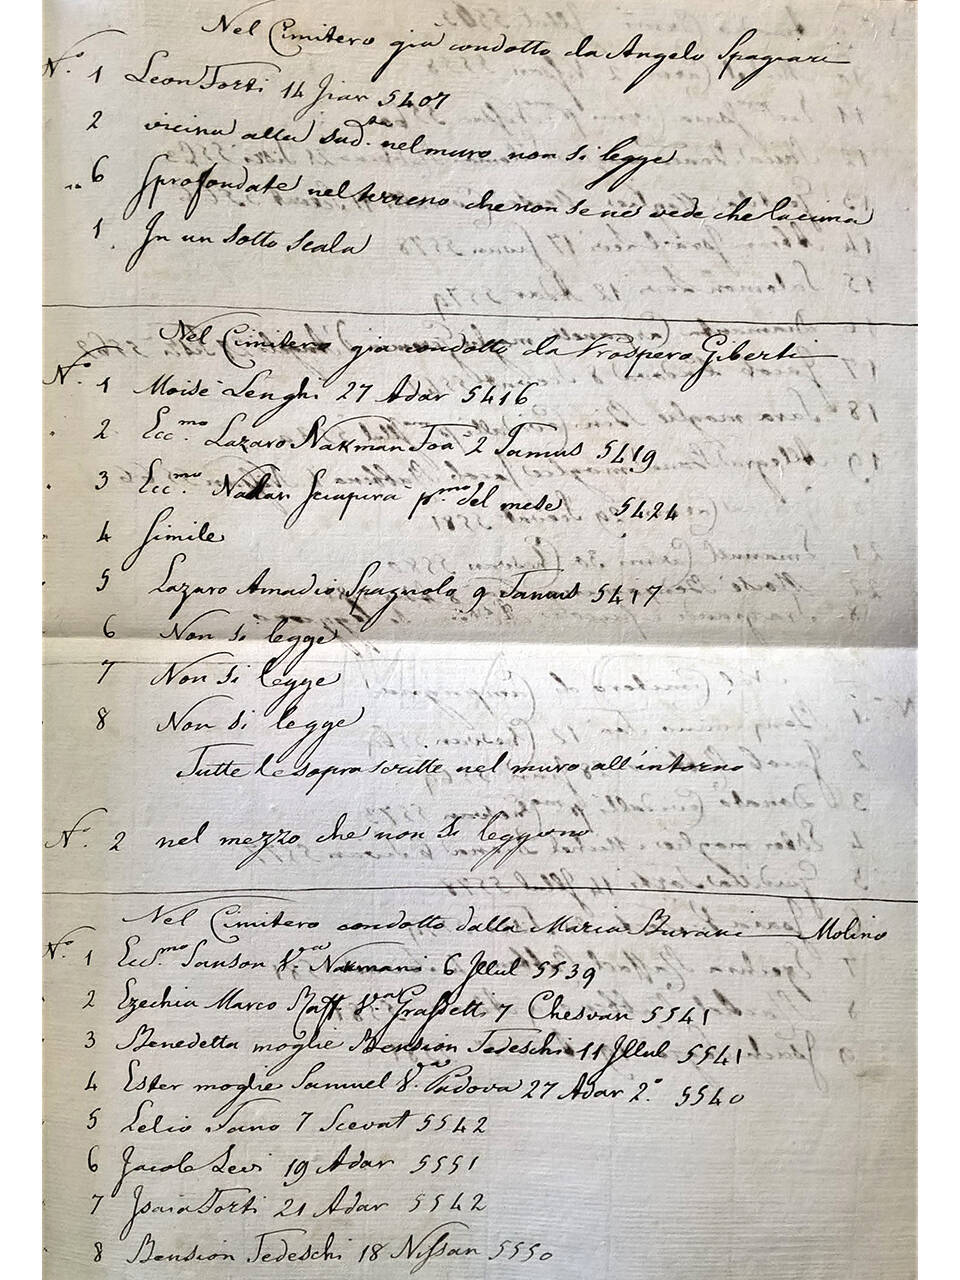 Nel Cimitero già condotto da Angelo Spagiari
N.° 1 Leon Forti 14 Jiar 5407
2 vicina alla sud.ta nel muro non si legge
6 Sprofondate nel terreno che non se ne vede che la cima
1 In un sotto scala
Nel Cimitero già condotto da Prospero Giberti
N.° 1 Moisè Lenghi 27 Adar 5416
2 Ecc.mo Lazaro Nakman Foa 2 Tamus 5419
3 Ecc.mo Natan Sciapira p.mo del mese 5424
4 Simile
5 Lazaro Amadio Spagnolo 9 Tamus 5417
6 Non si legge
7 Non si legge
8 Non si legge
Tutte le soprascritte nel muro all'intorno
N.° 2 nel mezzo che non si leggono
Nel Cimitero condotto dalla Maria Burani Molino
N.° 1 Ecc.mo Sanson V.a Nakmani 6 Jllul 5539
2 Ezechia Marco Raff. V.a Grassetti 7 Chesvan 5541
3 Benedetta moglie Bension Tedeschi 11 Jllul 5541
4 Ester moglie Samuel V.a Padova 27 Adar 2.° 5540
5 Lelio Fano 7 Scevat 5542
6 Jacob Levi 19 Adar 5551
7 Isaia Forti 21 Adar 5542
8 Bension Tedeschi 18 Nissan 5550